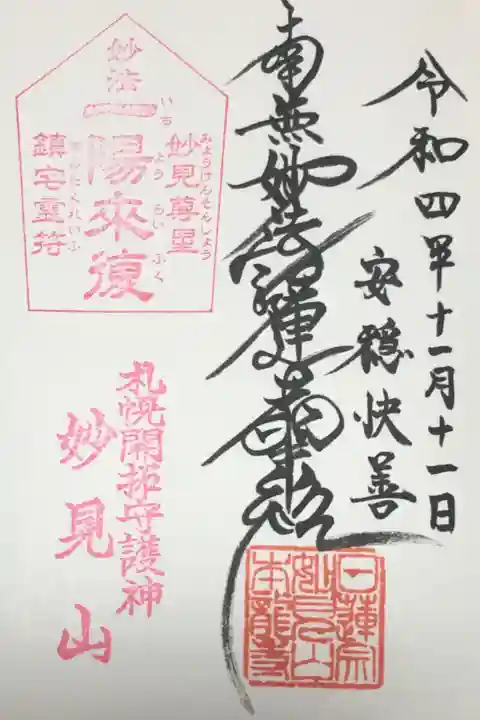 令和四年十一月十一日
安穏快善
南無妙法蓮華経
妙法
一陽來復
いち よう らい ふく
妙見尊星
みょうけんそんしょう
鎮宅霊符
札幌開拓守護神
妙見山
日蓮宗
妙見山
本龍寺